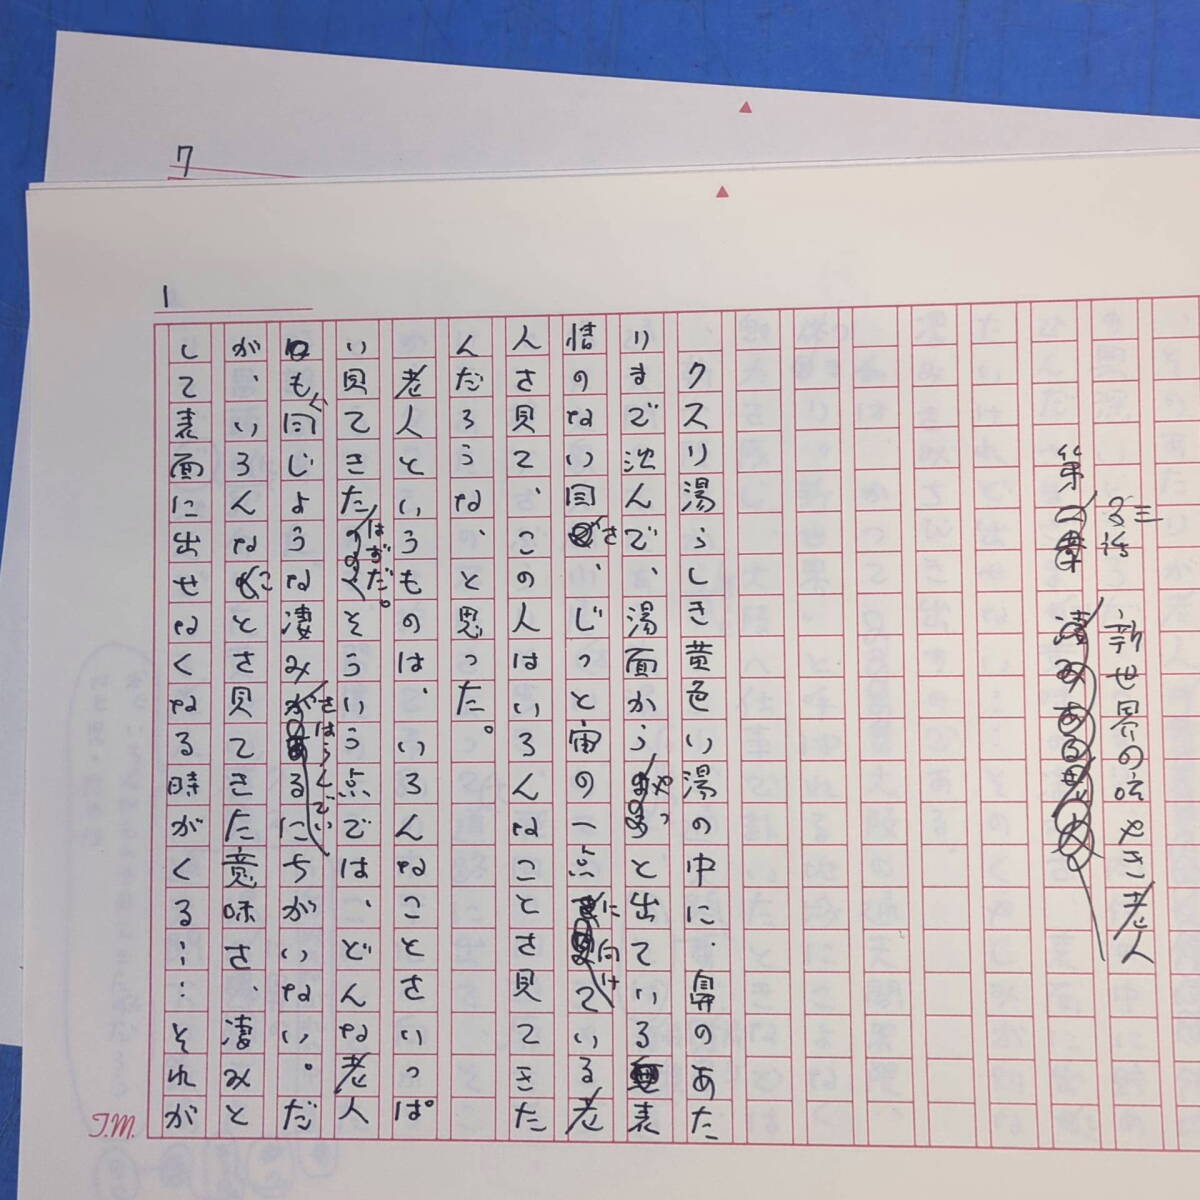 7
1
第三話 新世界の呟やき老人
クスリ湯らしき黄色い湯の中に、鼻のあた
りまで沈んで、湯面からやっと出ている表
情のない目を、じっと宙の一点に向けている老
人を見て、この人はいろんなことを見てきた
んだろうな、と思った。
老人というものは、いろんなことをいっぱ
い見てきたはずだ。そういう点では、どんな老人
も同じような凄みをはらんでいるにちがいない。だ
が、いろんなことを見てきた意味を、凄みと
して表面に出せなくなる時がくる……それが
T.M.